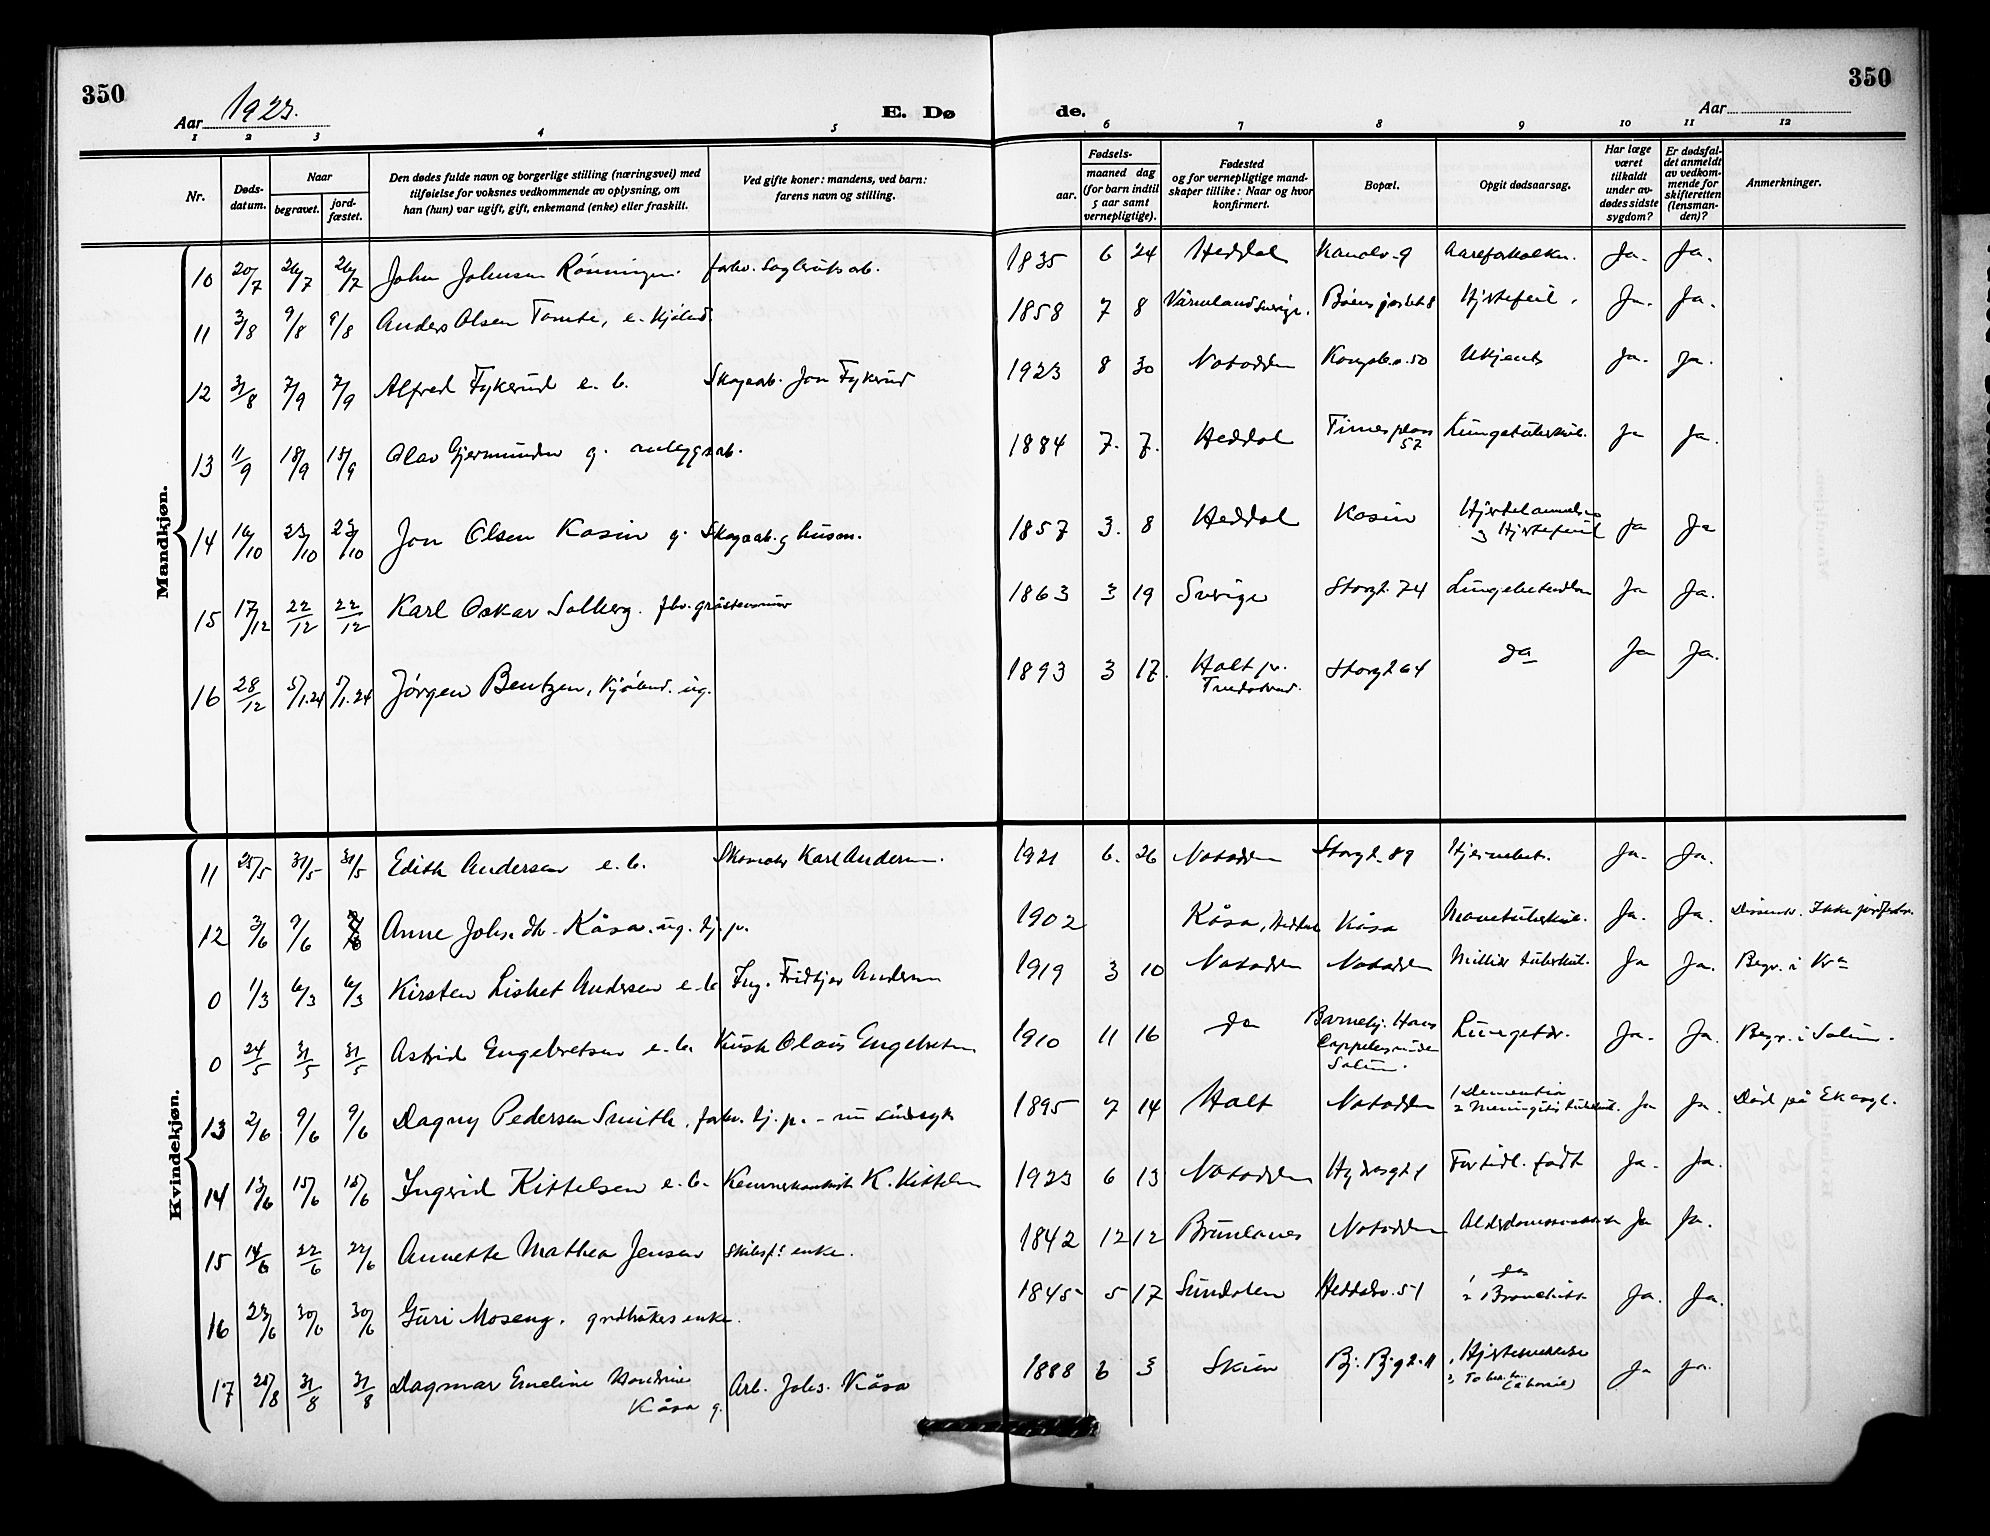 350
Aar 1923.
E. Dø
de.
Aar
350
1 2 3 4 5 6 7 8 9 10 11 12
Nr.
Døds-datum.
Naar
begravet.
jord-fæstet.
Den dødes fulde navn og borgerlige stilling (næringsvei) med
tilføielse for voksnes vedkommende av oplysning, om
han (hun) var ugift, gift, enkemand (enke) eller fraskilt.
Ved gifte koner: mandens, ved barn:
farens navn og stilling.
Fødsels-
aar.
maaned
dag
(for barn indtil
5 aar samt
vernepligtige).
Fødested
og for vernepligtige mand-
skaper tillike: Naar og hvor
konfirmert.
Bopæl.
Opgit dødsaarsag.
Har læge
været
tilkaldt
under av-
dødes sidste
sygdom?
Er dødsfal-
det anmeldt
av vedkom-
mende for
skifteretten
(lensman-
den)?
Anmerkninger.
Mandkjøn.
10 20/7 26/7 26/7 John Johnsen Rönningen. forhv. Sagbruksarb. 1835 6 24 Heddal 9 Ja. Ja.
11 3/8 9/8 9/8 Anders Olsen Tomte, e. Kjøbmd. 1858 7 8 Värmland Sverige. 8 Hjertefeil. Ja. Ja.
12 31/8 7/9 7/9 Alfred Fykerud e. b. Skogsarb. Jon Fykerud 1923 8 30 Notodden Kongsb.v. 50 Ukjent Ja. Ja.
13 11/9 18/9 18/9 Olav Gjermundsen g. anleggsarb. 1884 7. 7. Heddal Tinnesplass 57 Lungetuberkul. Ja Ja.
14 16/10 23/10 23/10 Jon Olsen Kasin g. Skogsarb. g husm. 1857 3. 8 Heddal Kasin Hjertelammelse
og Hjertefeil Ja Ja
15 17/12 22/12 22/12 Karl Oskar Solberg. fhv. 1863 3 19 Sverige Storgt. 74 Lungebetendelse Ja Ja.
16 28/12 5/1.24 5/1.24 Jørgen Bentzen, Kjøbmd. ug. 1893 3 17. Holt pr.
Tvedestrand. Storgt 64 do Ja Ja.
Kvindekjøn.
11 25/5 31/5 31/5 Edith Andersen e. b. Karl Andersen. 1921 6. 26 Notodden Storgt. 89 Hjernebet. Ja. Ja.
12 3/6 9/6 Anne Johs.dtr. Kåsa. ug. tj. p. 1902 Kåsa, Heddal Kåsa Ja. Ja. Dissent. Ikke jordfestet.
0 1/3 6/3 6/3 Kirsten Lisbet Andersen e. b Ing. Fridtjov Andersen 1919 3 10 Notodden Notodden Milliær tuberkul. Ja Ja. Begr. i Kra
0 24/5 31/5 31/5 Astrid Engebretsen e. b. Kusk Olaus Engebretsen 1910 11 16 do Barnehj. Hans
Cappelens minde
Solum. Lungetbr. Ja. Ja. Begr. i Solum.
13 2/6 9/6 9/6 Dagny Pedersen Smith, forhv. tj. p. - nu sindssyk 1895 7 14 Holt Notodden 1 Dementia
2 Meningitis tuberkul. Ja Ja. Død på Ek asyl.
14 13/6 15/6 15/6 Ingrid Kittelsen e. b. Kemnerkontorist K. Kittelsen 1923 6 13 Notodden Hydrogt 1 For tidl. født Ja. Ja.
15 14/6 22/6 22/6 Annette Mathea Jensen skibsf: enke. 1842 12 12 Brunlanes Notodden Ja Ja.
16 23/6 30/6 30/6 Guri Moseng. grdbrukers enke. 1845 5 17 Sundalen Heddalsv. 51 1 do
2 Bronchitt Ja. Ja.
17 25/8 31/8 31/8 Dagmar Emeline
Kåsa g. Arb. Johs. Kåsa 1888 6 3 Skien Bj. Bj gt. 11 1 Ja Ja.